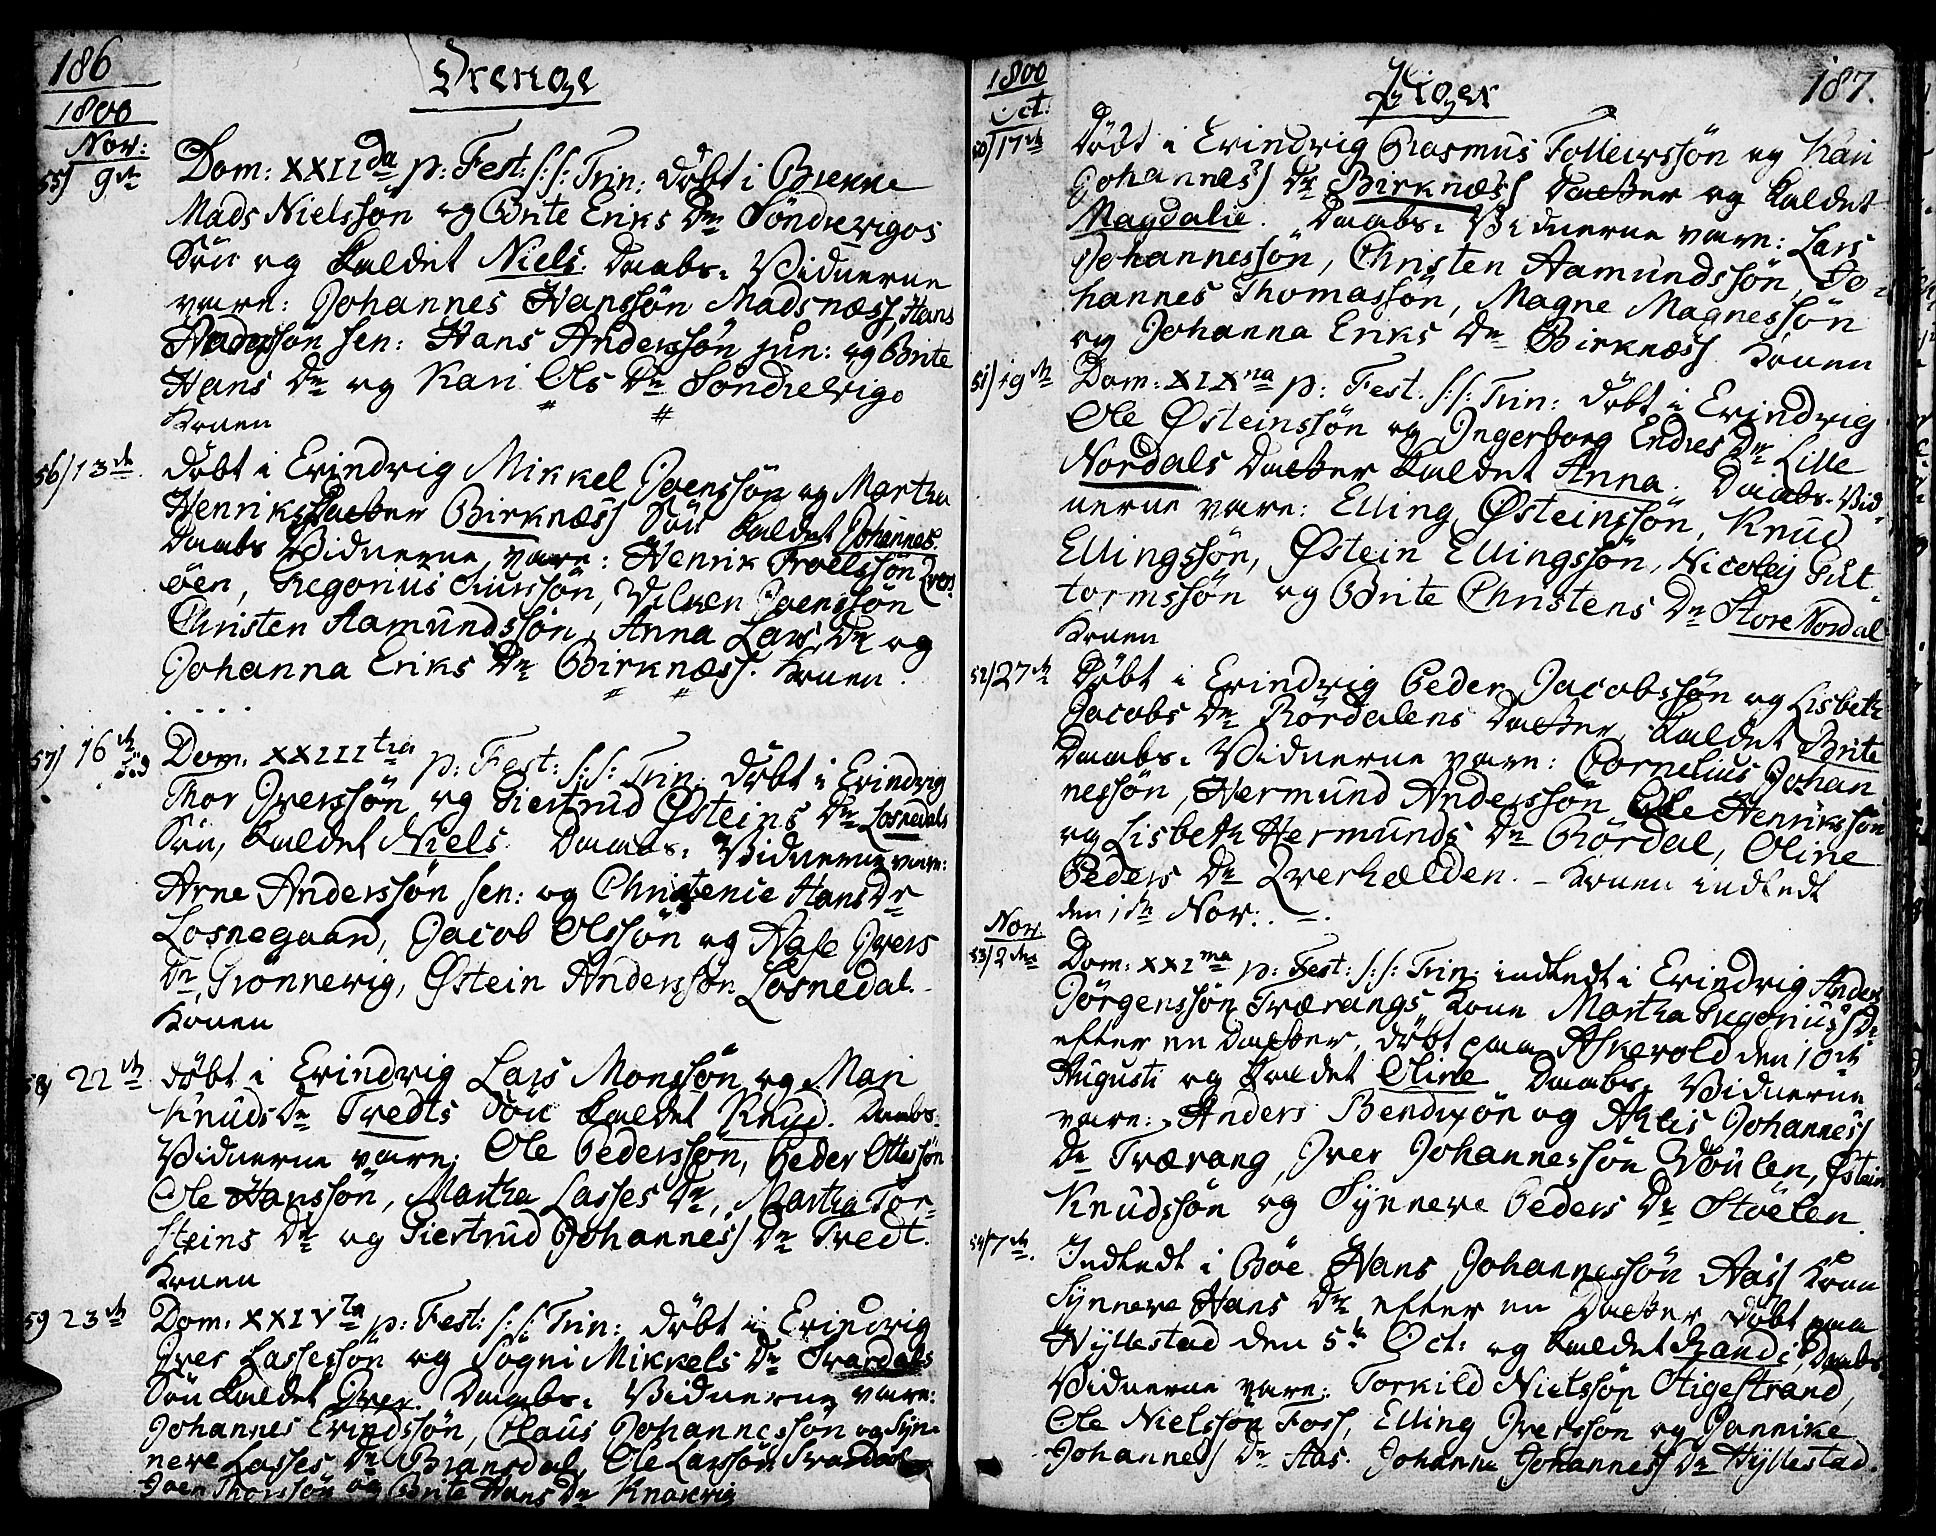 186
Drenge
1800
Nov:
55) 9de Dom: XXIIda p: Fest: S: S: Trin: döbt i Brekke
Mads Nielssön og Brite Eriks Dr Söndrevigos
Sön og kaldet Niels. Daabs-Vidnerne
vare: Johannes Hanssön Madsnæss, Hans
Anderssön sen: Hans Anderssön jun: og Brite
Hans Dr og Kari Ols Dr Söndrevigo
Konen
56) 13de döbt i Evindvig Mikkel Joenssön og Martha
Henriks Datter Birknæss Sön kaldet Johannes.
Daabs Vidnerne vare: Henrik Troelssön
öen, Gregorius Siurssön, Vilken Joenssön
Christen Aamundssön, Anna Lars Dr og
Johanna Eriks Dr Birknæss. Konen
57) 16de Dom: XXIIItia p: Fest: S: S: Trin: döbt i Evindvig
Thor Iverssön og Giertrud Østeins Dr Losnedals
Sön, kaldet Niels. Daabs-Vidnerne vare:
Arne Anderssön sen: og Christenie Hans Dr
Losnegaard, Jacob Olssön og Aase Ivers
Dr Grönnevig, Østein Anderssön Losnedal.
Konen
58) 22de döbt i Evindvig Lars Monssön og Mari
Knuds Dr Tredts Sön kaldet Knud. Daabs-
Vidnerne vare: Ole Pederssön, Peder Ottessön
Ole Hanssön, Martha Lasses Dr, Martha Tor-
steins Dr og Giertrud Johanness Dr Tredt.
Konen
59 23de Dom: XXIVta p: Fest: S: S: Trin: döbt i Evindvig
Iver Lassessön og Sogni Mikkels Dr Svardals
Sön kaldet Iver. Daabs-Vidnerne vare:
Johannes Erindssön, Claus Johannessön og Syn-
neve Lasses Dr Bransdal, Ole Larssön Svardal
Joen Thorssön og Brite Hans Dr Knakvig
1800
Piger
187.
Oct:
50) 17de Döbt i Evindvig Rasmus Tolleivssön og Kari
Johanness Dr Birknæss Datter og kaldet
Magdalie. Daabs-Vidnerne vare: Lars
Johannessön, Christen Aamundssön, Jo-
hannes Thomassön, Magne Magnessön
og Johanna Eriks Dr Birknæss Konen
51) 19de Dom: XIXna p: Fest: S: S: Trin: döbt i Evindvig
Ole Østeinssön og Ingerborg Endres Dr Lille
Nordals Datter kaldet Anna. Daabs-Vid-
nerne vare: Elling Østeinssön, Knud
Ellingssön, Østein Ellingssön, Nicolay Gut-
tormssön og Brite Christens Dr Store Nordal
Konen
52) 27de Döbt i Evindvig Peder Jacobssön og Lisbeth
Jacobs Dr Rördalens Datter, kaldet Brite
Daabs-Vidnerne vare: Cornelius Johan
nessön, Hermund Anderssön Ole Henrikssön
og Lisbeth Hermunds Dr Rördal, Oline
Peders Dr Qverhælden. - Konen indledt
den 1ste Nov:
Nov
53) 2den Dom: XXIma p: Fest: S: S: Trin: indledt i Evindvig Anders
Jörgenssön Trærangs Kone Martha Gregoriuss Dr
efter en Datter, döbt paa Askevold den 10de
Augusti og kaldet Oline Daabs-Vidnerne
vare: Anders Bendixön og Ahlis Johanness
Dr Trærang, Iver Johannessön Stölen, Østein
Knudssön og Synneve Peders Dr Stöelen.
54) 7de Indledt i Böe Hans Johannessön Aass Kone
Synneve Hans Dr efter en Datter döbt paa
Hyllestad den 5te Oct: og kaldet Randi, Daabs-
Vidnerne vare: Torkild Nielssön Stigestrand,
Ole Nielssön Foss, Elling Iverssön og Jannike
Johanness Dr Aas. Johanne Johanness Dr Hyllestad.